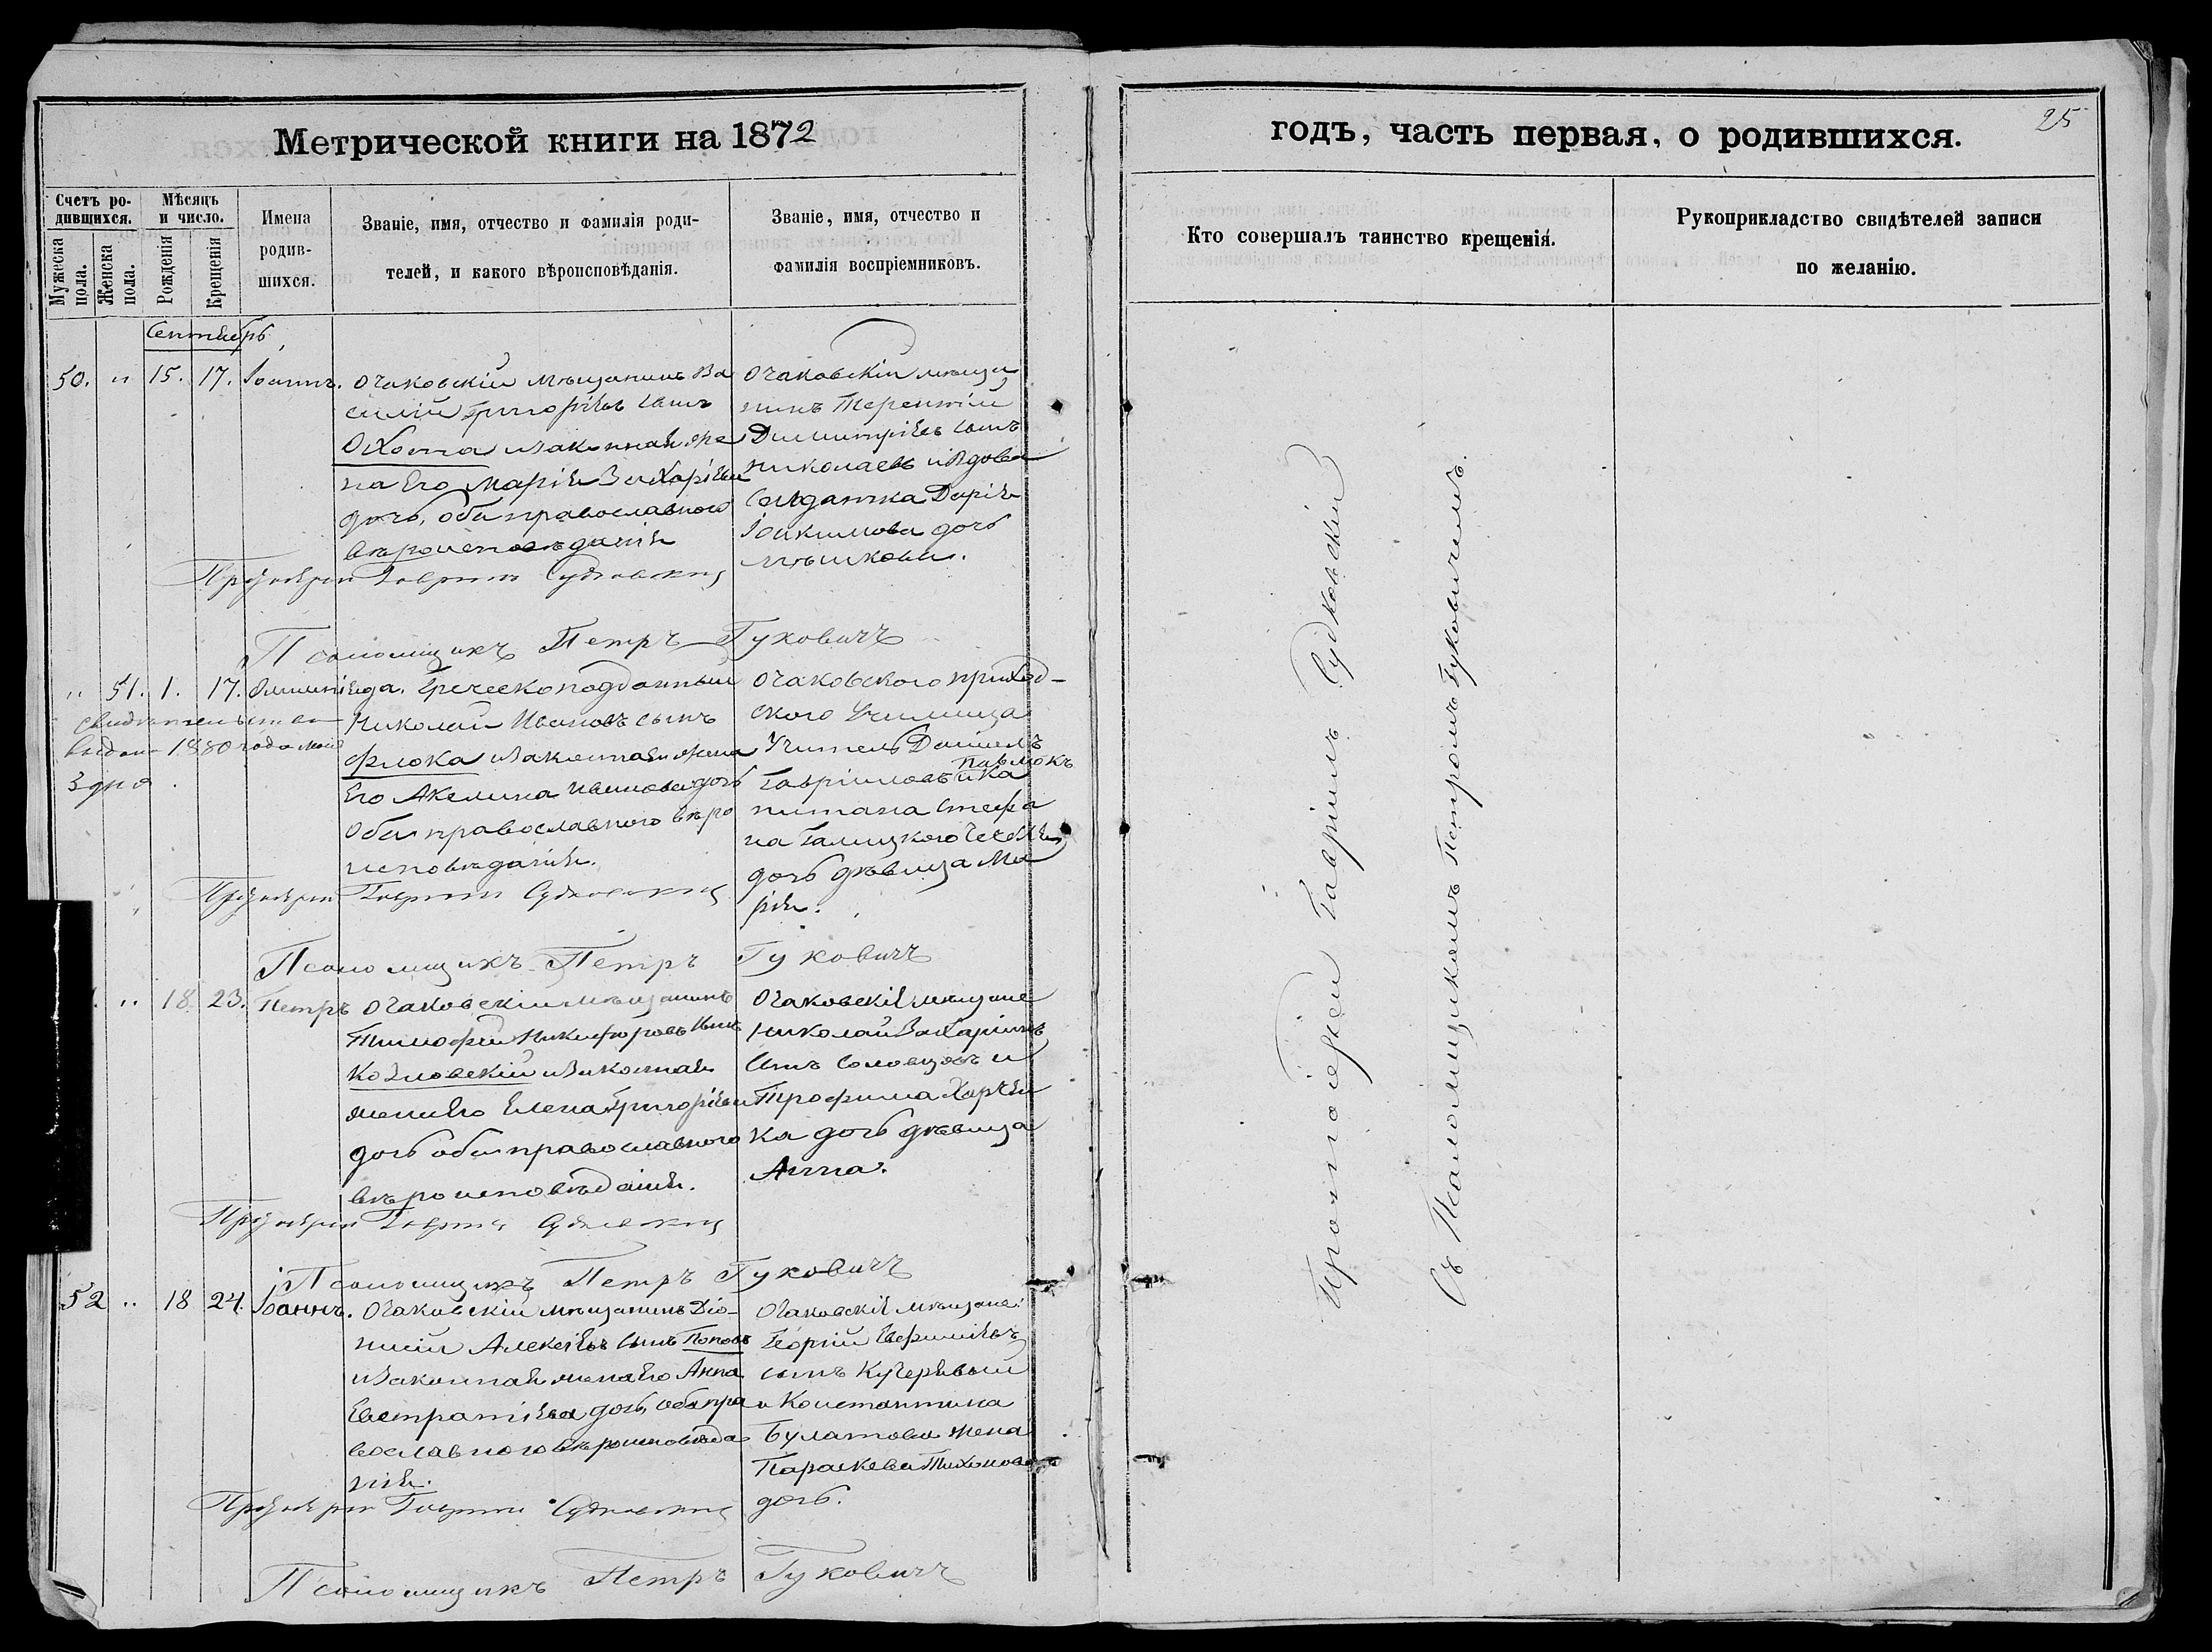 Метрической книги на 1872
годъ, часть первая, о родившихся.
25
Счетъ ро-
дившихся.
Мужеска
пола.
Женска
пола.
Мѣсяцъ
и число.
Рожденія
Крещенія
Имена
родив-
шихся.
Званіе, имя, отчество и фамилія роди-
телей, и какого вѣроисповѣданія.
Званіе, имя, отчество и
фамилія воспріемниковъ.
Кто совершалъ таинство крещенія.
Рукоприкладство свидѣтелей записи
по желанію.
Сентябрь
50. " 15. 17. Іоаннъ.
Очаковскій мѣщанинъ Ва
силій Григоріевъ сынъ
Охота и законная же
на Его Марія Захаріева
дочь, оба православного
вѣроисповѣданія
Очаковскій мѣща
нинъ Терентій
Димитріевъ сынъ
Николаевъ и вдова
Солдатка Дарія
Іоакимова дочь
Протоіерей Гавріилъ Судковскій
Псаломщикъ Петръ Гуковичъ
" 51. 1. 17.
свидѣтельство
выдано 1880 года мая
3 дня
Греческоподданный
Николай Ивановъ сынъ
Флока и законная жена
Его Акелина Иванова дочь
Оба православного вѣро
исповѣданія.
Очаковского приход-
ского Училища
Учитель Даніилъ
Гавріиловъ Павлюкъ и Ка
питана Стефа
на Галицкого
дочь дѣвица Ма
рія.
Протоіерей Гавріилъ Судковскій
Псаломщикъ Петръ Гуковичъ
" 18. 23. Петръ
Очаковскій мѣщанинъ
Тимофей Никифоровъ сынъ
Козловскій и законная
жена Его Елена Григоріева
дочь оба православного
вѣроисповѣданія.
Очаковскіе мѣщане
Николай Захаріинъ
сынъ Соловцовъ и
Трофима
ка дочь дѣвица
Анна.
Протоіерей Гавріилъ Судковскій
Псаломщикъ Петръ Гуковичъ
52 " 18 24. Іоаннъ.
Очаковскій мѣщанинъ Діо-
нисій Алексѣевъ сынъ Поповъ
и законная жена Его Анна
Евстратіева дочь, оба пра
вославного вѣроисповѣда
нія.
Очаковскіе мѣщане:
Георгій Евфиміевъ
сынъ Кучерявый
и Константина
Булатова жена
Параскева Тихонова
дочь.
Протоіерей Гавріилъ Судковскій
Псаломщикъ Петръ Гуковичъ
Протоіерей Гавріилъ Судковскій
Съ Псаломщикомъ Петромъ Гуковичемъ.